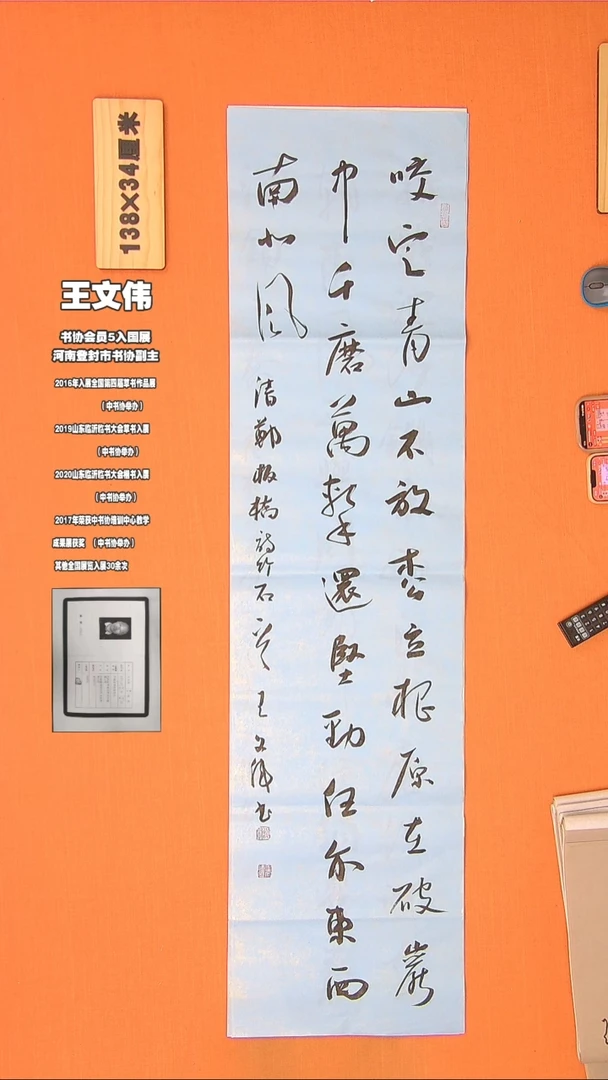 138×34厘米
王文伟
书协会员5入国展
河南登封市书协副主
2016年入展全国第四届草书作品展
（中书协举办）
2019山东临沂临书大会草书入展
（中书协举办）
2020山东临沂临书大会楷书入展
（中书协举办）
2017年荣获中书协培训中心教学
成果展获奖 （中书协举办）
其他全国展览入展30余次
咬定青山不放枩立根原在破巖
中千磨萬擊還堅勁任尔東西
南北风
清鄭板橋詩竹石一首 王文伟书